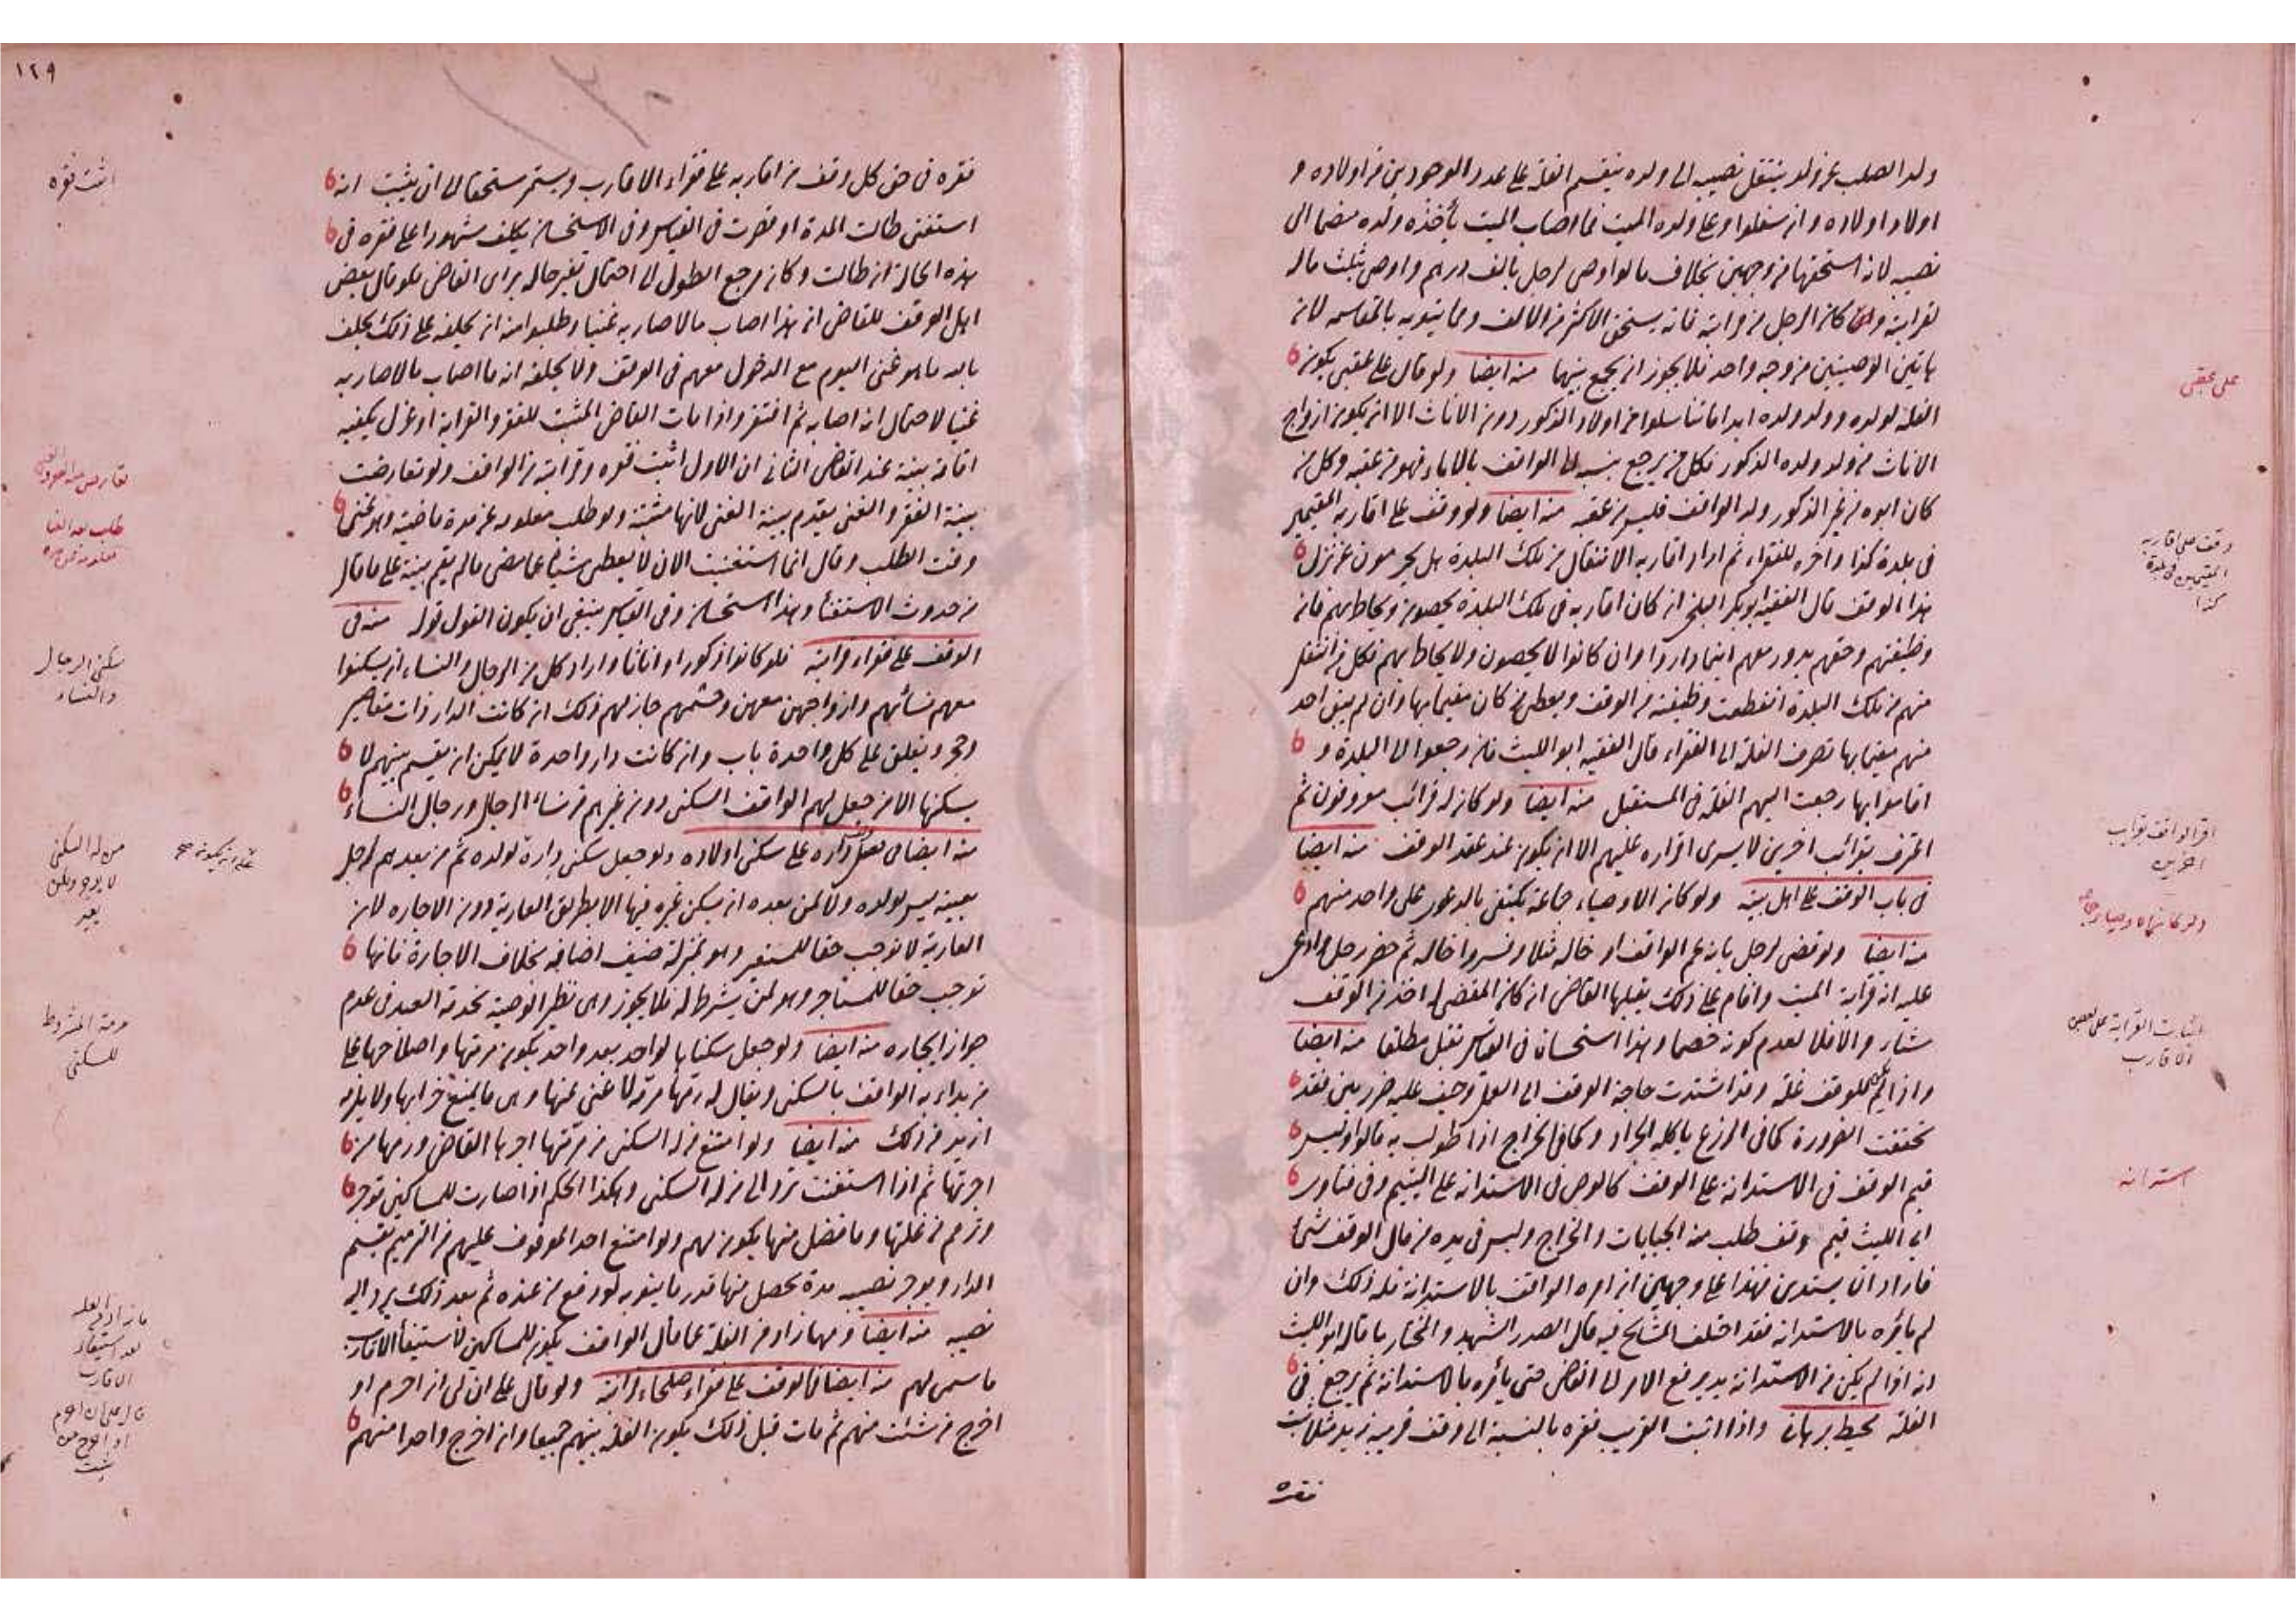 ولد الصلب عن ولد ينتقل نصيبه الى ولده ينقسم الغلة على عدد الموجودين من اولاده و
اولاد اولاده وان سفلوا وعلى ولده الميت فما اصاب الميت يأخذه ولده منضما الى
نصيبه لانه استحقها من وجهين بخلاف ما لو اوصى لرجل بالف درهم واوصى بثلث ماله
لقرابته وكان الرجل من قرابته فانه يستحق الاكثر من الالف ومما ينوبه بالمقاسمة لان
هاتين الوصيتين من وجه واحد فلا يجوز ان يجمع بينهما منه ايضا ولو قال على عقبى يكون
الغلة لولده وولد ولده ابدا ما تناسلوا من اولاد الذكور دون الاناث الا ان يكون ازواج
الاناث من ولد ولده الذكور فكل من يرجع بنسبه الى الواقف بالاباء فهو من عقبه وكل من
كان ابوه من غير الذكور ولد الواقف فليس من عقبه منه ايضا ولو وقف على اقاربه المقيمين
فى بلدة كذا واخره للفقراء ثم اراد اقاربه الانتقال من تلك البلدة هل يحرمون عن نزل
هذا الوقف قال الفقيه ابو بكر البلخى ان كان اقاربه فى تلك البلدة يحصون ويحاط بهم فان
وظيفتهم وحقهم يدور معهم اينما داروا وان كانوا لا يحصون ولا يحاط بهم فكل من انتقل
منهم من تلك البلدة انقطعت وظيفته من الوقف ويعطى من كان مقيما بها وان لم يبق احد
منهم مقيما بها تصرف الغلة الى الفقراء قال الفقيه ابو الليث فان رجعوا الى البلدة و
اقاموا بها رجعت اليهم الغلة فى المستقبل منه ايضا ولو كان له قرائب معروفون ثم
اعترف بقرائب اخرين لا يسرى اقراره عليهم الا ان يكون عند عقد الوقف منه ايضا
فى باب الوقف على اهل بيته ولو كان الاوصياء جماعة يكتفى بالدعوى على واحد منهم
منه ايضا ولو قضى لرجل بانه عم الواقف او خاله مثلا وفسروا خاله ثم حضر رجل وادعى
عليه انه قرابة الميت واقام على ذلك يقبلها القاضى ان كان المقضى له اخذ من الوقف
شيئا والا فلا لعدم كونه خصما وهذا استحسان فى القياس تقبل مطلقا منه ايضا
واذا لم يكن للوقف غلة وقد اشتدت حاجة الوقف الى العمل وخيف عليه ضرر بين فقد
تحققت الضرورة كما فى الزرع ياكله الجراد وكما فى الخراج اذا طولب به قالوا وليس
قيم الوقف فى الاستدانة على الوقف كالوصى فى الاستدانة على اليتيم وفى فتاوى
ابى الليث قيم وقف طلب منه الجبايات والخراج وليس فى يده من مال الوقف شئ
فاراد ان يستدين فهذا على وجهين ان امره الواقف بالاستدانة فله ذلك وان
لم يأمره بالاستدانة فقد اختلف المشايخ فيه قال الصدر الشهيد والمختار ما قاله ابو الليث
انه اذا لم يكن من الاستدانة بد يرفع الامر الى القاضى حتى يأمره بالاستدانة ثم يرجع فى
الغلة محيط برهانى واذا اثبت القريب فقره بالنسبة الى وقف قريبه زيد مثلا ثبت
فقره
على عقبى
وقف على اقاربه
المقيمين فى بلدة
كذا
اقر الواقف بقرائب
اخرين
ولو كان الاوصياء جماعة
اثبات القرابة على بعض
الاقارب
استدانه
١٢٩
فقره فى حق كل وقف من اقاربه على فقراء الاقارب ويستمر مستحقا الى ان يثبت انه
استغنى طالت المدة او قصرت فى القياس وفى الاستحسان يكلف شهودا على فقره فى
هذه الحالة ان طالت وكان مرجع الطول الى احتمال تغير حاله براى القاضى فلو قال بعض
اهل الوقف للقاضى ان هذا اصاب مالا صار به غنيا وطلبوا منه ان يحلفه على ذلك يحلف
بالله ما هو غنى اليوم مع الدخول معهم فى الوقف ولا يحلفه انه ما اصاب مالا صار به
غنيا لاحتمال انه اصابه ثم افتقر واذا مات القاضى المثبت للفقر والقرابة او عزل يكفيه
اقامة بينة عند القاضى الثانى ان الاول اثبت فقره وقرابته من الواقف ولو تعارضت
بينة الفقر والغنى يقدم بينة الغنى لانها مثبتة ولو طلب معلومه عن مدة ماضية وهو غنى
وقت الطلب وقال انما استغنيت الان لا يعطى شيئا عما مضى ما لم يقم بينة على ما قال
من حدوث الاستغناء وهذا استحسان وفى القياس ينبغى ان يكون القول قوله منه فى
الوقف على فقراء قرابته فلو كانوا ذكورا واناثا واراد كل من الرجال والنساء ان يسكنوا
معهم نسائهم وازواجهن معهن وحشمهم جاز لهم ذلك ان كانت الدار ذات مقاصير
وحجر ويغلق على كل واحدة باب وان كانت دار واحدة لا يمكن ان يقسم بينهم لا
يسكنها الا من جعل لهم الواقف السكنى دون غيرهم من نساء الرجال ورجال النساء
منه ايضا فى فصل داره على سكنى اولاده ولو جعل سكنى داره لولده ثم من بعدهم لرجل
بعينه ليس لولده ولا لمن بعده ان يسكن غيره فيها الا بطريق العارية دون الاجارة لان
العارية لا توجب حقا للمستعير وهو بمنزلة ضيف اضافه بخلاف الاجارة فانها
توجب حقا للمستاجر وهو لمن يشرط له فلا يجوز وهى نظير الوصية بخدمة العبد فى عدم
جواز ايجاره منه ايضا ولو جعل سكناها لواحد بعد واحد يكون مرمتها واصلاحها على
من بداء به الواقف بالسكنى ويقال له رمها مرمة لا غنى عنها وهى ما يمنع خرابها ولا يلزمه
ازيد من ذلك منه ايضا ولو امتنع من له السكنى من مرمتها اجرها القاضى ورمها من
اجرتها ثم اذا استغنت ترد الى من له السكنى وهكذا الحكم اذا صارت للمساكين توجر
وترم من غلتها وما فضل منها يكون لهم ولو امتنع احد الموقوف عليهم من الترميم يقسم
الدار ويوجر نصيبه مدة يحصل منها قدر ما ينوبه لو دفع من عنده ثم بعد ذلك يرد اليه
نصيبه منه ايضا ومهما زاد من الغلة عما قال الواقف يكون للمساكين لاستيفاء الاقارب
ما سمى لهم منه ايضا فى الوقف على فقراء صلحاء قرابته ولو قال على ان لى ان احرم او
اخرج من شئت منهم ثم مات قبل ذلك يكون الغلة بينهم جميعا وان اخرج واحدا منهم
اثبت فقره
طلب بعد الغنا
سكنى الرجال
والنساء
من له السكنى
لا يوجر ولكن
يعير
مرمة المشروط
للسكنى
ما زاد من الغلة
بعد استيفاء
الاقارب
قال على ان احرم
او اخرج من
شئت